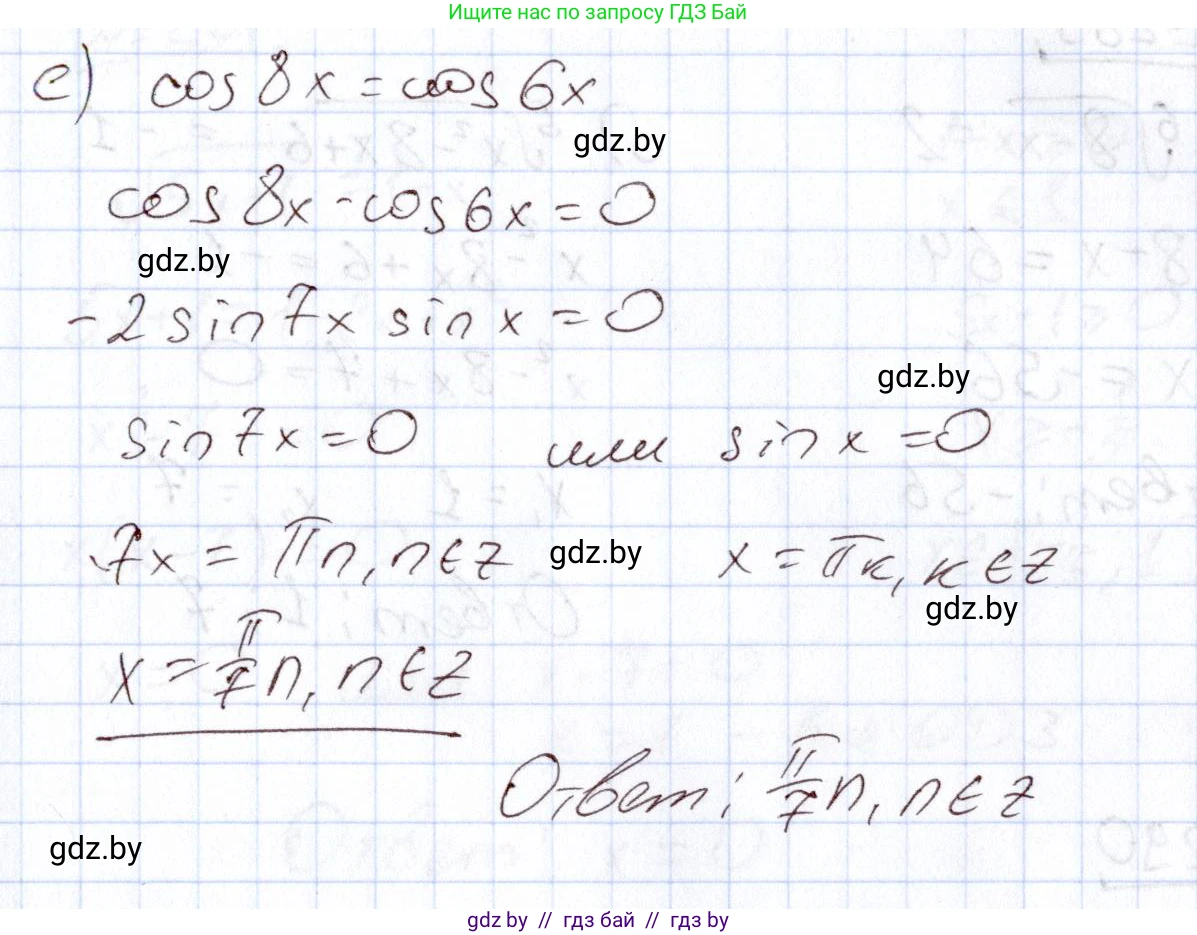 Ищите нас по запросу ГДЗ Бай
е) cos 8x = cos 6x
gdz.by
cos 8x - cos 6x = 0
gdz.by
-2 sin 7x sin x = 0
gdz.by
sin 7x = 0 или sin x = 0
7x = πn, n ∈ z gdz.by x = πк, к ∈ z
gdz.by
x = π/7 n, n ∈ z
Ответ: π/7 n, n ∈ z
gdz.by
gdz by // гдз бай // гдз by